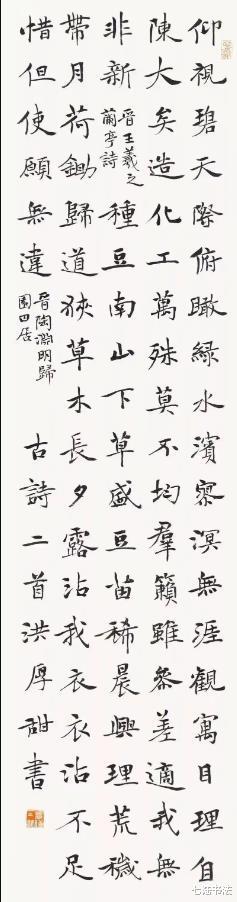 仰視碧天際俯瞰綠水濱寥溟無涯觀寓目理自
陳大矣造化工萬殊莫不均羣籟雖參差適我無
非新
晉王羲之
蘭亭詩
種豆南山下草盛豆苗稀晨興理荒穢
帶月荷鋤歸道狹草木長夕露沾我衣衣沾不足
惜但使願無違
晉陶淵明歸
園田居
古詩二首洪厚甜書
书法